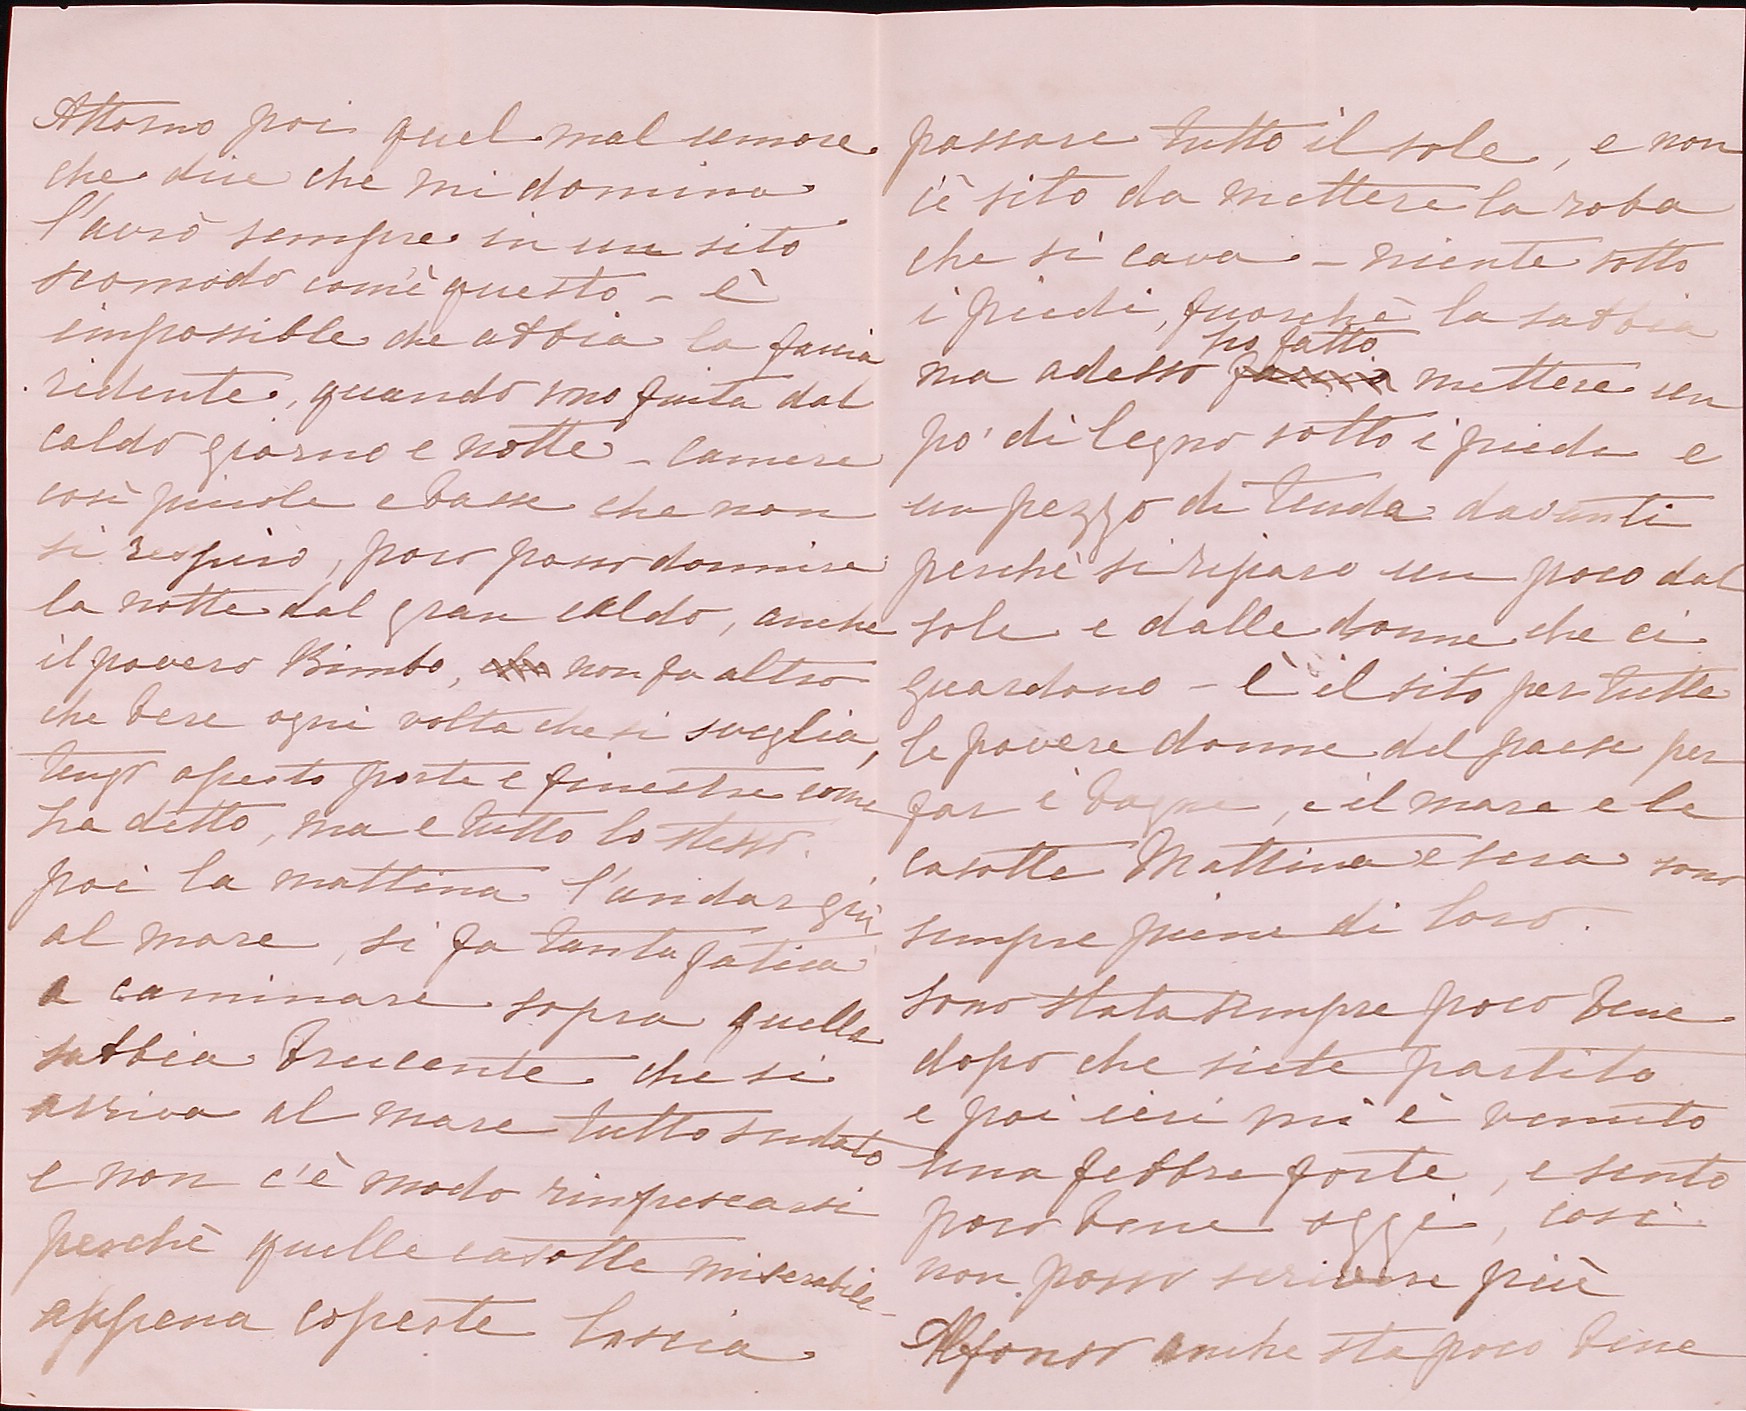 Attorno poi quel mal umore
che dice che mi domina
l'avrò sempre in un sito
scomodo com'è questo - è
impossible che abbia la faccia
ridente, quando sono finita dal
caldo giorno e notte - camere
così piccole e basse che non
si respira, poco posso dormire
la notte dal gran caldo, anche
il povero Bimbo, non fa altro
che bere ogni volta che si sveglia,
tengo aperto porte e finestre come
ha detto, ma e tutto lo stesso.
poi la mattina l'andar giù
al mare, si fa tanta fatica
a caminare sopra quella
sabbia brucente che si
arriva al mare tutto sudato
e non c'è modo rinfrescarsi
perchè quelle casotte miserabile
appena coperte lascia
passare tutto il sole, e non
c'è sito da mettere la roba
che si cava - niente sotto
i piedi, fuorchè la sabbia
ma adesso ho fatto mettere un
po' di legno sotto i piedi e
un pezzo di tenda davanti
perchè si ripara un poco dal
sole e dalle donne che ci
guardono - è il sito per tutte
le povere donne del paese per
far i bagni, e il mare e le
casotte Mattina e sera sono
sempre piene di loro.
sono stata sempre poco bene
dopo che siete partito
e poi ieri mi è venuto
una febbre forte, e sento
poco bene oggi, così
non posso scrivere più
Alfonso anche sta poco bene